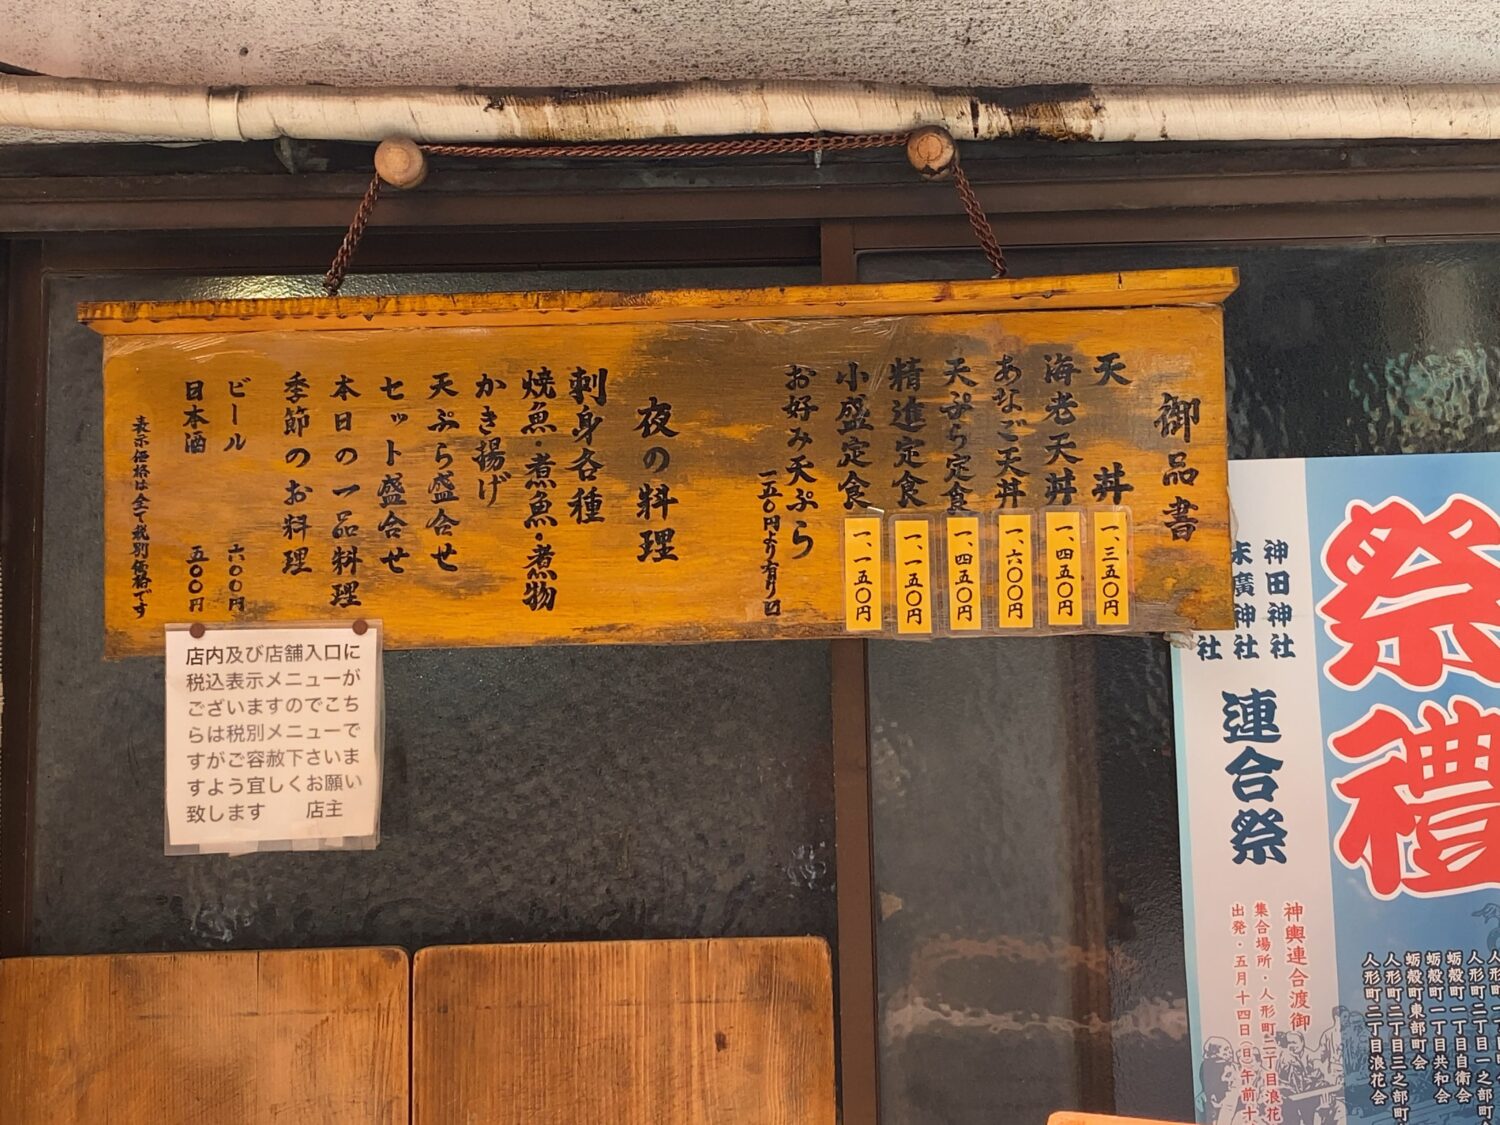 御品書
天丼 一、三五〇円
海老天丼 一、四五〇円
あなご天丼 一、六〇〇円
天ぷら定食 一、四五〇円
精進定食 一、一五〇円
小盛定食 一、一五〇円
お好み天ぷら
一五〇円より有り〼
夜の料理
刺身各種
焼魚・煮魚・煮物
かき揚げ
天ぷら盛合せ
セット盛合せ
本日の一品料理
季節のお料理
ビール 六〇〇円
日本酒 五〇〇円
表示価格は全て税別価格です
店内及び店舗入口に
税込表示メニューが
ございますのでこち
らは税別メニューで
すがご容赦下さいま
すよう宜しくお願い
致します 店主
祭禮
神田神社
末廣神社
社
連合祭
神輿連合渡御
集合場所・人形町二丁目浪花
出発・五月十四日(日)午前十
人形町二丁目一之部町
蛎殻町一丁目自衛会
蛎殻町一丁目共和会
蛎殻町東部町会
人形町二丁目三之部町
人形町二丁目浪花会